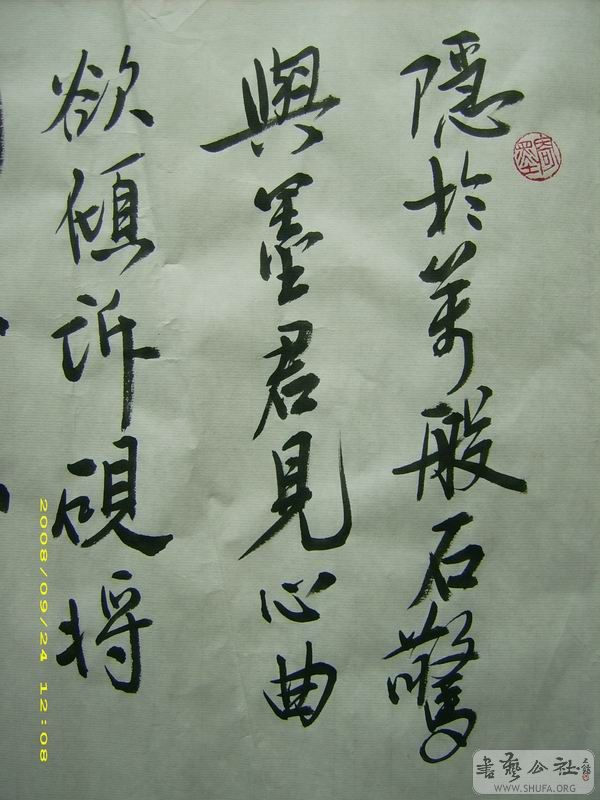 隱於萬般石驚
與墨君見心曲
欲傾訴硯将
2008/09/24 12:08
書藝公社
WWW.SHUFA.ORG